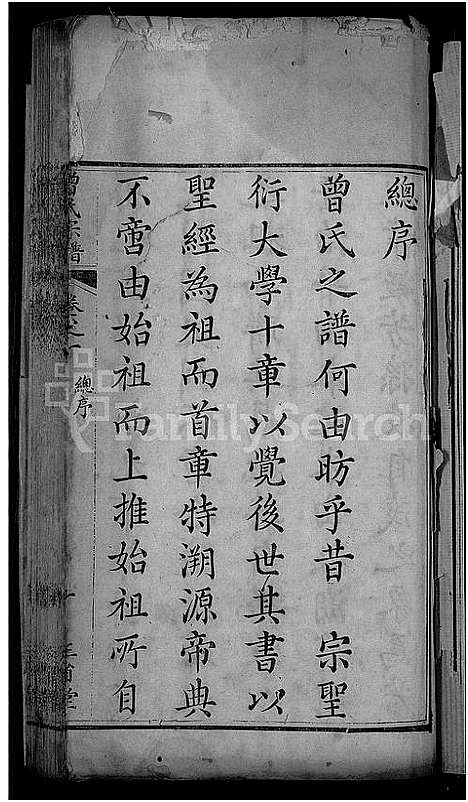 總序
曾氏之譜何由昉乎昔　宗聖
衍大學十章以覺後世其書以
聖經為祖而首章特溯源帝典
不啻由始祖而上推始祖所自
曾氏宗譜
總序
FamilySearch